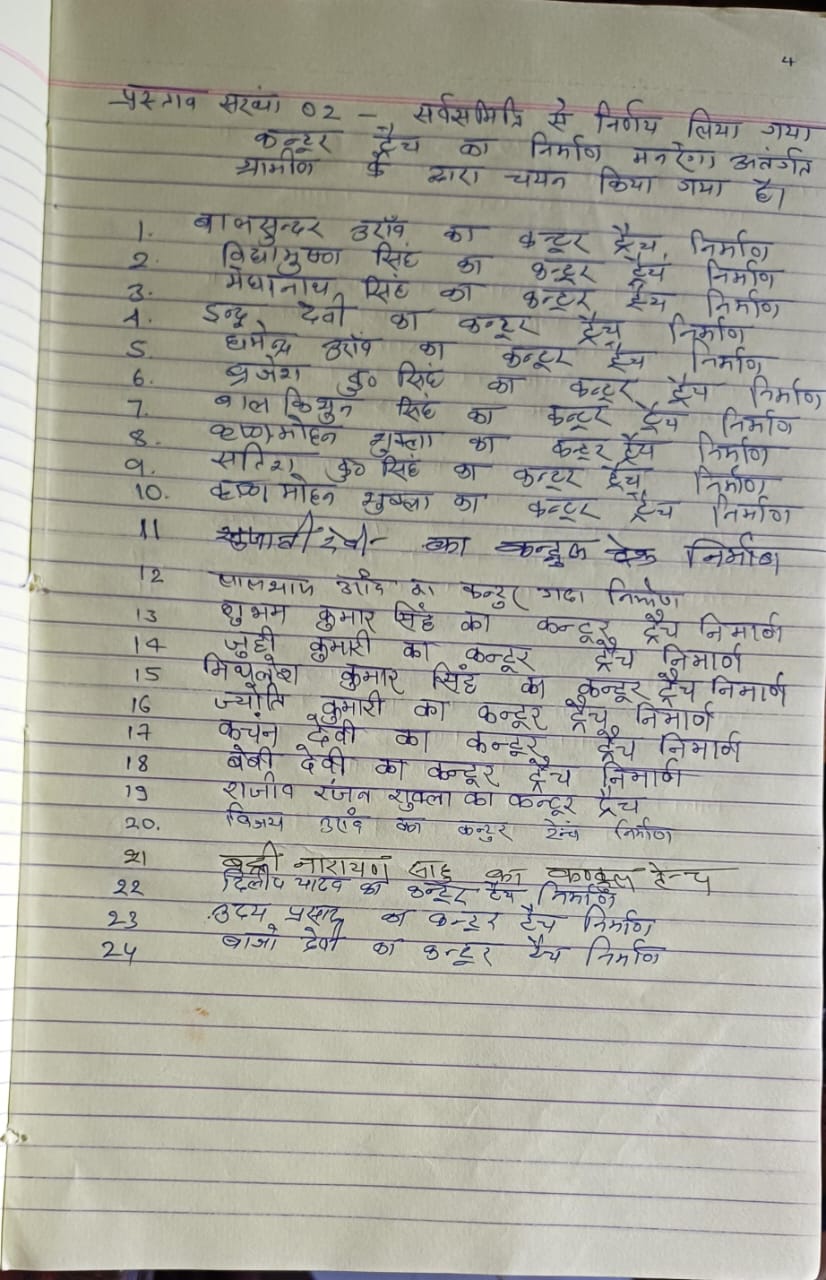 4
प्रस्ताव संख्या 02 - सर्वसमिति से निर्णय लिया गया
कन्टूर ट्रैंच का निर्माण मनरेगा अंतर्गत
ग्रामीण के द्वारा चयन किया गया है।
1. बालसुन्दर उराँव का कन्टूर ट्रैच निर्माण
2. विद्याभुष्ण सिंह का कन्टूर ट्रैच निर्माण
3. मेघानाथ सिंह का कन्टूर ट्रैच निर्माण
4. इन्दू देवी का कन्टूर ट्रैच निर्माण
5. धमेन्द्र उराँव का कन्टूर ट्रैच निर्माण
6. ब्रजेश कु० सिंह का कन्टूर ट्रैच निर्माण
7. बाल किशुन सिंह का कन्टूर ट्रैच निर्माण
8. कृष्णा मोहन शुक्ला का कन्टूर ट्रैच निर्माण
9. सतिश कु० सिंह का कन्टूर ट्रैच निर्माण
10. कृष्णा मोहन शुक्ला का कन्टूर ट्रैच निर्माण
11 देवी का निर्माण
12 का कन्टुर निर्माण
13 शुभम कुमार सिंह का कन्टूर ट्रैच निमार्ण
14 जुही कुमारी का कन्टूर ट्रैच निमार्ण
15 मिथुलेश कुमार सिंह का कन्टूर ट्रैच निमार्ण
16 ज्योति कुमारी का कन्टूर ट्रैच निमार्ण
17 कचंन देवी का कन्टूर ट्रैच निमार्ण
18 बेबी देवी का कन्टूर ट्रैच निमार्ण
19 राजीव रंजन शुक्ला का कन्टूर ट्रैच
20. विजय उरांव का कन्टुर ट्रेन्च निर्माण
21 बद्री नारायण साहु का हेन्च
22 दिलीप यादव का कन्टूर ट्रैच निर्माण
23 उदय प्रसाद का कन्टूर ट्रैच निर्माण
24 बाजो देवी का कन्टूर ट्रैच निर्माण